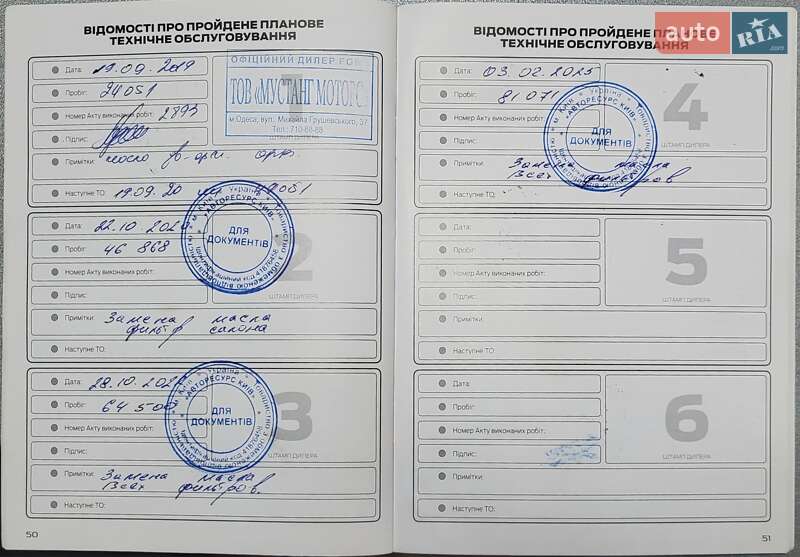 ВІДОМОСТІ ПРО ПРОЙДЕНЕ ПЛАНОВЕ
ТЕХНІЧНЕ ОБСЛУГОВУВАННЯ
Дата: 19.09.2019
Пробіг: 24051
Номер Акту виконаних робіт: 2893
Підпис:
Примітки:
Наступне ТО: 19.09.20
1
ОФІЦІЙНИЙ ДИЛЕР FORD
ТОВ «МУСТАНГ МОТОРС»
м.Одеса, вул. Михайла Грушевського, 37
Дата: 22.10.202
Пробіг: 46 868
Номер Акту виконаних робіт:
Підпис:
Примітки: Замена масла
фильтр салона
Наступне ТО:
2
ШТАМП ДИЛЕРА
Україна
м. Київ
«АВТОРЕСУРС КИЇВ»
ДЛЯ
ДОКУМЕНТІВ
Дата: 28.10.202
Пробіг: 64 500
Номер Акту виконаних робіт:
Підпис:
Примітки: Замена масла
Всех фильтров.
Наступне ТО:
3
ШТАМП ДИЛЕРА
Україна
м. Київ
«АВТОРЕСУРС КИЇВ»
ДЛЯ
ДОКУМЕНТІВ
50
ВІДОМОСТІ ПРО ПРОЙДЕНЕ ПЛАНОВЕ
ТЕХНІЧНЕ ОБСЛУГОВУВАННЯ
auto RIA
.com
Дата: 03.02.2025
Пробіг: 81 071
Номер Акту виконаних робіт:
Підпис:
Примітки: Замена масла
Всех фильтров
Наступне ТО:
4
ШТАМП ДИЛЕРА
Україна
м. Київ
«АВТОРЕСУРС КИЇВ»
ДЛЯ
ДОКУМЕНТІВ
Дата:
Пробіг:
Номер Акту виконаних робіт:
Підпис:
Примітки:
Наступне ТО:
5
ШТАМП ДИЛЕРА
Дата:
Пробіг:
Номер Акту виконаних робіт:
Підпис:
Примітки:
Наступне ТО:
6
ШТАМП ДИЛЕРА
51